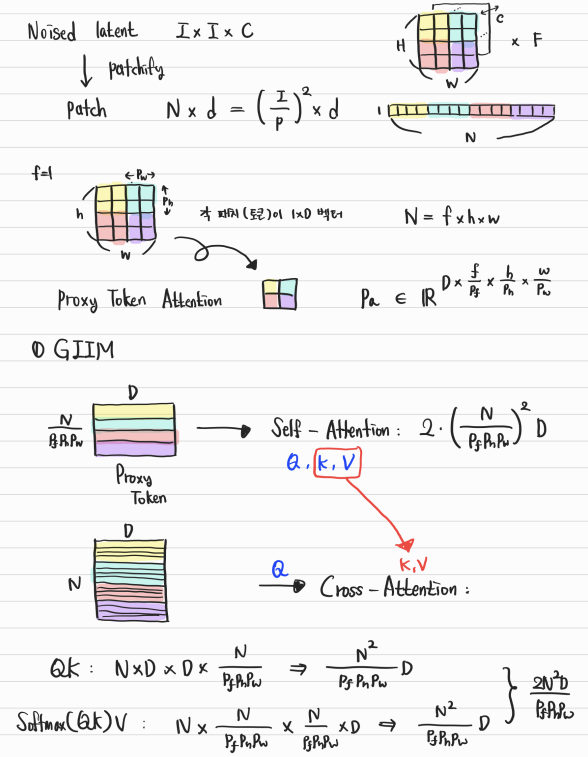 Noised latent I x I x C
H
C
x F
W
↓ patchify
Patch N x d = (I/p)² x d
1
N
f=1
← Pw →
Ph
h
W
각 패치(토큰)이 1xD 벡터
N = f x h x w
Proxy Token Attention
Pa ∈ ℝ^(D x f/Pf x h/Ph x w/Pw)
① GIIM
D
N/PfPhPw → Self - Attention : 2 · (N/PfPhPw)² D
Q, K, V
Proxy
Token
D
K, V
N
Q → Cross - Attention :
QK : N x D x D x N/PfPhPw ⇒ N²/PfPhPw D
Softmax(QK)V : N x N/PfPhPw x N/PfPhPw x D ⇒ N²/PfPhPw D
} 2N²D/PfPhPw